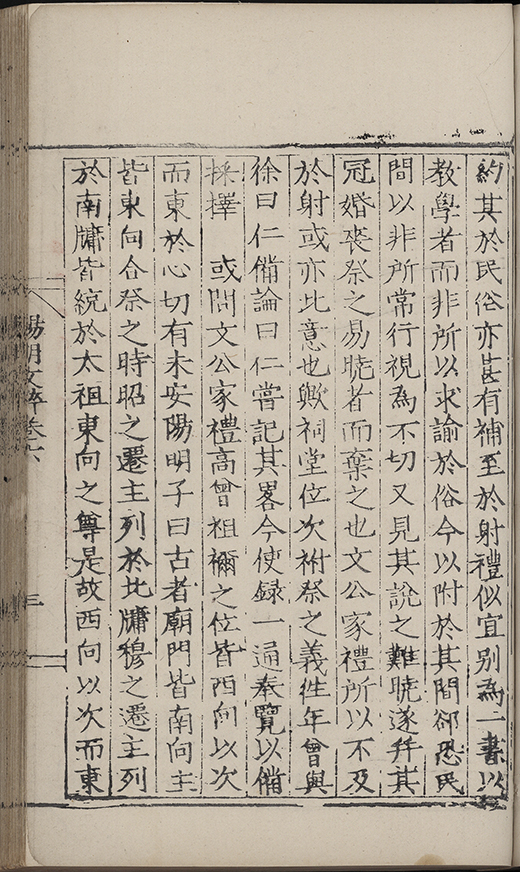 約其於民俗亦甚有補至於射禮似宜別為一書以
教學者而非所以求諭於俗今以附於其間卻恐民
間以非所常行視為不切又見其說之難曉遂幷其
冠婚喪祭之易曉者而棄之也文公家禮所以不及
於射或亦此意也歟祠堂位次祔祭之義徃年曾與
徐曰仁備論曰仁嘗記其畧今使録一通奉覽以備
採擇　或問文公家禮高曾祖禰之位皆西向以次
而東於心切有未安陽明子曰古者廟門皆南向主
皆東向合祭之時昭之遷主列於北牖穆之遷主列
於南牖皆統於太祖東向之尊是故西向以次而東
陽明文粹卷六
三